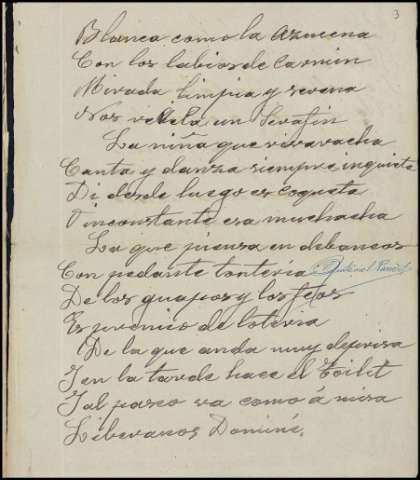 3
Blanca como la Azucena
Con los labios de Carmin
Mirada limpia y serena
Nos revela un Serafin
La niña que vivaracha
Canta y danza siempre inquieta
Di desde luego es coqueta
O inconstante esa muchacha
La que piensa en debaneos
Con pedante tonteria
De los guapos y los feos
Es premio de loteria
De la que anda muy deprisa
Y en la tarde hace el Toilet
Y al paseo va como á misa
Liberanos Dominé.